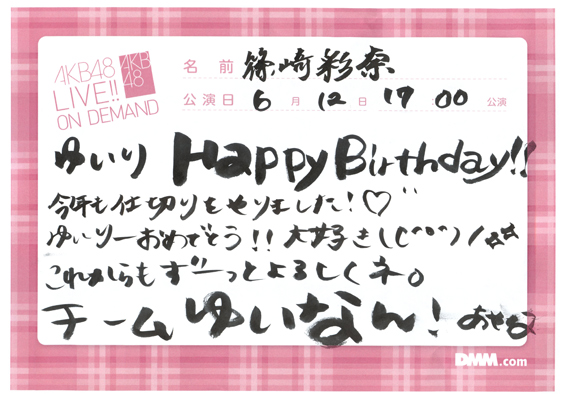 AKB48
LIVE!!
ON DEMAND
AKB
48
名前 篠崎彩奈
公演日 6月 12日 17:00 公演
ゆいり Happy Birthday!!
今年も仕切りをやりました!♡
ゆいりーおめでとう!!大好き
これからもずーっとよろしくネ。
チームゆいなん!
DMM.com